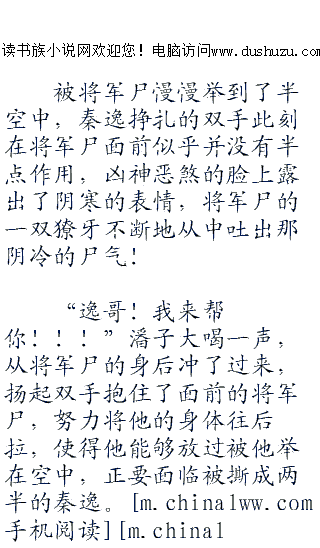 读书族小说网欢迎您！电脑访问www.dushuzu.com
被将军尸慢慢举到了半
空中，秦逸挣扎的双手此刻
在将军尸面前似乎并没有半
点作用，凶神恶煞的脸上露
出了阴寒的表情，将军尸的
一双獠牙不断地从中吐出那
阴冷的尸气！
“逸哥！我来帮
你！！！”潘子大喝一声，
从将军尸的身后冲了过来，
扬起双手抱住了面前的将军
尸，努力将他的身体往后
拉，使得他能够放过被他举
在空中，正要面临被撕成两
半的秦逸。[m.china1ww.com
手机阅读][m.china1